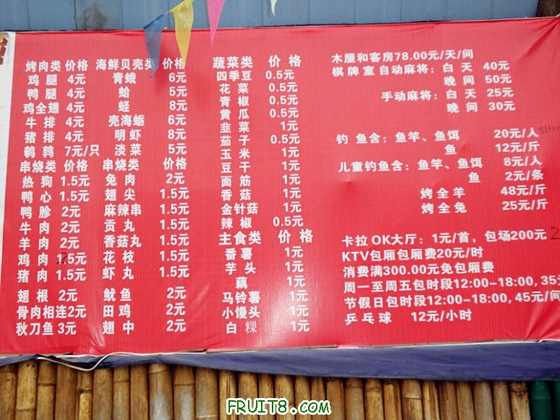 烤肉类 价格 海鲜贝壳类 价格
鸡腿 4元 青蛾 6元
鸭腿 4元 蛤 5元
鸡全翅 4元 蛏 8元
牛排 4元 壳海蛎 6元
猪排 4元 明虾 8元
鹌鹑 7元/只 淡菜 5元
串烧类 价格 串烧类 价格
热狗 1.5元 兔肉 2元
鸭心 1.5元 翅尖 1.5元
鸭胗 2元 麻辣串 1.5元
牛肉 2元 贡丸 1.5元
羊肉 2元 香菇丸 1.5元
鸡肉 1.5元 花枝 1.5元
猪肉 1.5元 虾丸 1.5元
翅根 2元 鱿鱼 2元
骨肉相连 2元 田鸡 2元
秋刀鱼 3元 翅中 2元
蔬菜类 价格
四季豆 0.5元
花菜 0.5元
青椒 0.5元
黄瓜 0.5元
韭菜 1元
茄子 0.5元
玉米 1元
豆干 1元
面筋 1元
香菇 1元
金针菇 1元
辣椒 0.5元
主食类 价格
番薯 1元
芋头 1元
藕 1元
马铃薯 1元
小馒头 1元
白粿 1元
木屋和客房78.00元/天/间
棋牌室 自动麻将：白天 40元
晚间 50元
手动麻将：白天 25元
晚间 30元
钓鱼含：鱼竿、鱼饵 20元/人
鱼 12元/斤
儿童钓鱼含：鱼竿、鱼饵 8元/人
鱼 2元/条
烤全羊 48元/斤
烤全兔 25元/斤
卡拉OK大厅：1元/首，包场200元
KTV包厢包厢费20元/时
消费满300.00元免包厢费
周一至周五包时段12:00-18:00, 35元
节假日包时段12:00-18:00, 45元/间
乒乓球 12元/小时
FRUIT8.COM